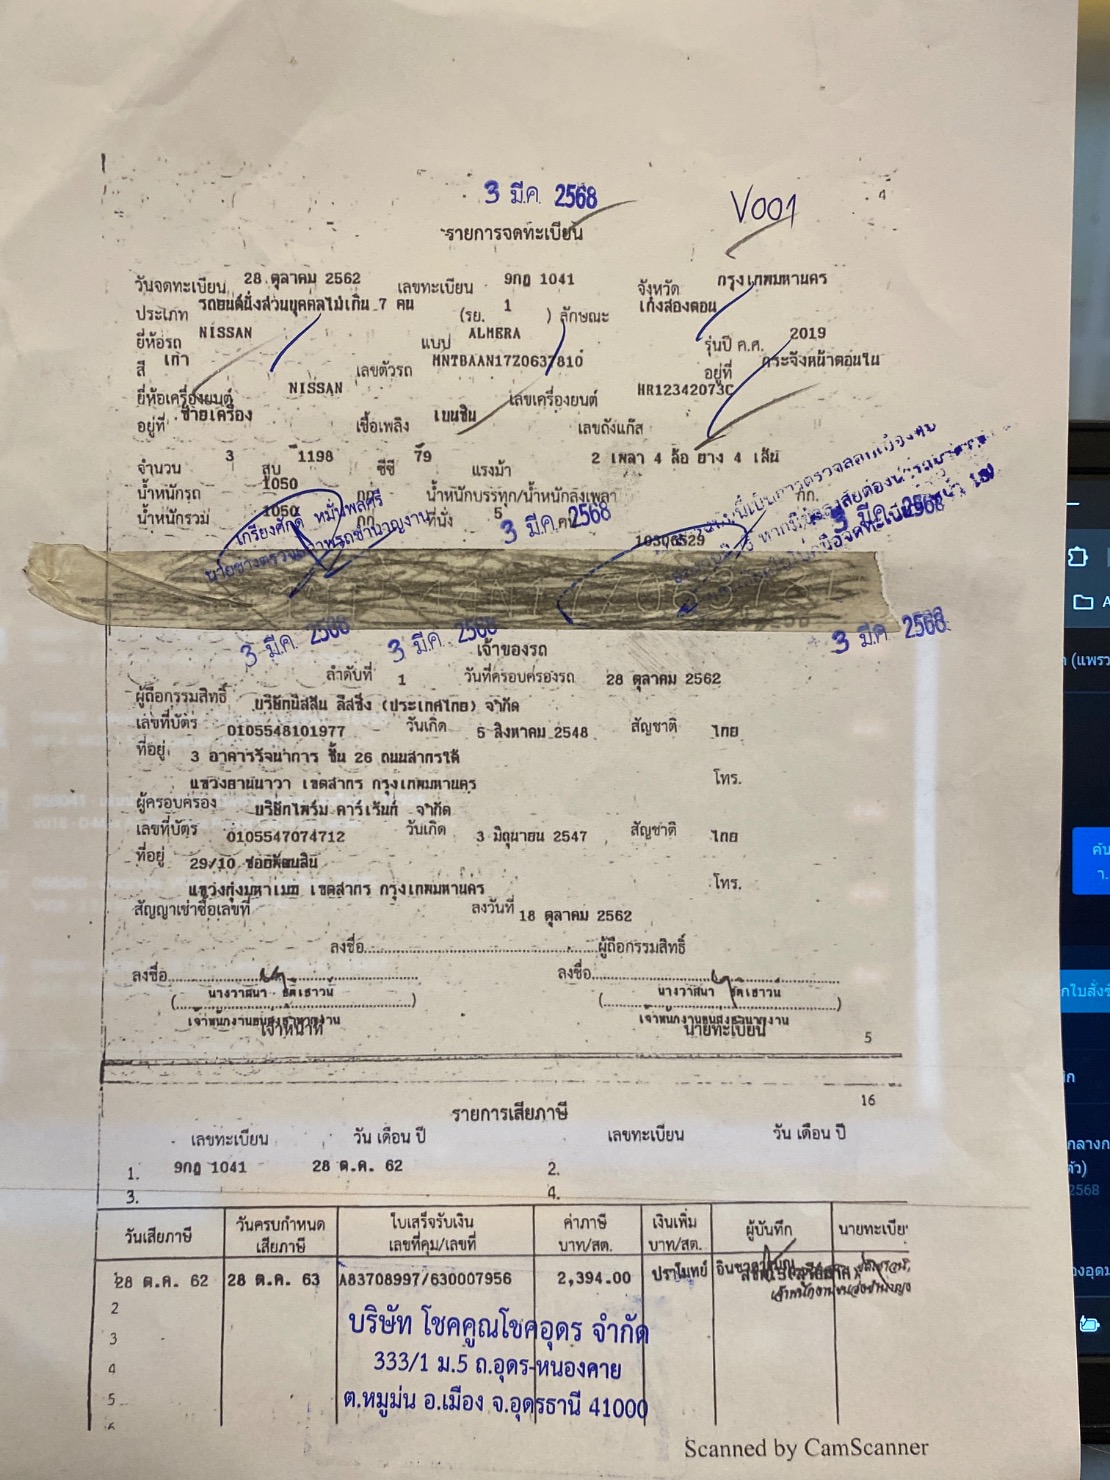 3 มี.ค. 2568
V001
4
รายการจดทะเบียน
วันจดทะเบียน 28 ตุลาคม 2562 เลขทะเบียน 9กฎ 1041 จังหวัด กรุงเทพมหานคร
ประเภท รถยนต์นั่งส่วนบุคคลไม่เกิน 7 คน (รย. 1 ) ลักษณะ เก๋งสองตอน
ยี่ห้อรถ NISSAN แบบ ALMERA รุ่นปี ค.ศ. 2019
สี เทา เลขตัวรถ MNTBAAN17Z0637810 อยู่ที่ กระจังหน้าตอนใน
ยี่ห้อเครื่องยนต์ NISSAN เลขเครื่องยนต์ HR12342073C
อยู่ที่ ซ้ายเครื่อง เชื้อเพลิง เบนซิน เลขถังแก๊ส
จำนวน 3 สูบ 1198 ซีซี 79 แรงม้า 2 เพลา 4 ล้อ ยาง 4 เส้น
น้ำหนักรถ 1050 กก. น้ำหนักบรรทุก/น้ำหนักลงเพลา กก.
น้ำหนักรวม 1050 กก. ที่นั่ง 5 คน
3 มี.ค. 2568
3 มี.ค. 2568
เกรียงศักดิ์ หมั่นพลศรี
10306529
3 มี.ค. 2568 3 มี.ค. 2568 3 มี.ค. 2568
เจ้าของรถ
ลำดับที่ 1 วันที่ครอบครองรถ 28 ตุลาคม 2562
ผู้ถือกรรมสิทธิ์ บริษัทนิสสัน ลีสซิ่ง (ประเทศไทย) จำกัด
เลขที่บัตร 0105548101977 วันเกิด 5 สิงหาคม 2548 สัญชาติ ไทย
ที่อยู่ 3 อาคารรัจนาการ ชั้น 26 ถนนสาทรใต้
แขวงยานนาวา เขตสาทร กรุงเทพมหานคร โทร.
ผู้ครอบครอง บริษัทไพร์ม คาร์เร้นท์ จำกัด
เลขที่บัตร 0105547074712 วันเกิด 3 มิถุนายน 2547 สัญชาติ ไทย
ที่อยู่ 29/10 ซอยพัฒนสิน
แขวงทุ่งมหาเมฆ เขตสาทร กรุงเทพมหานคร โทร.
สัญญาเช่าซื้อเลขที่ ลงวันที่ 18 ตุลาคม 2562
ลงชื่อ ผู้ถือกรรมสิทธิ์
ลงชื่อ ลงชื่อ
( นางวาสนา ) ( นางวาสนา )
เจ้าพนักงานขนส่งชำนาญงาน เจ้าพนักงานขนส่งชำนาญงาน
เจ้าหน้าที่ นายทะเบียน
5
16
รายการเสียภาษี
เลขทะเบียน วัน เดือน ปี เลขทะเบียน วัน เดือน ปี
1. 9กฎ 1041 28 ต.ค. 62 2.
3. 4.
วันเสียภาษี วันครบกำหนดเสียภาษี ใบเสร็จรับเงิน เลขที่คุม/เลขที่ ค่าภาษี บาท/สต. เงินเพิ่ม บาท/สต. ผู้บันทึก นายทะเบีย
28 ต.ค. 62 28 ต.ค. 63 A83708997/630007956 2,394.00 ปราโมทย์
2
3
4
5
6
บริษัท โชคคูณโชคอุดร จำกัด
333/1 ม.5 ถ.อุดร-หนองคาย
ต.หมูม่น อ.เมือง จ.อุดรธานี 41000
Scanned by CamScanner